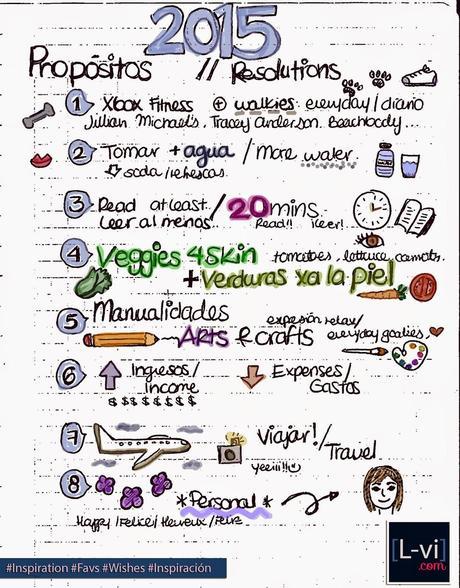 2015
Propósitos // Resolutions
1 Xbox Fitness + walkies everyday/diario
Jillian Michael's, Tracey Anderson. Beachbody...
2 Tomar + agua / More water
soda/refrescos
3 Read at least / 20 mins.
Leer al menos.. Read!! ¡Leer!
4 Veggies 4 Skin tomatoes, lettuce, carrots.
+ Verduras xa la piel
5 Manualidades
expresión, relax/
ARTS & crafts everyday goodies
6 Ingresos/ Expenses/
Income Gastos
$ $ $ $ $ $ $
7 Viajar!/Travel
yeeiii!!
8 *Personal*
Happy/Felice/Heureux/Feliz
#Inspiration #Favs #Wishes #Inspiración
[L-vi]
.com